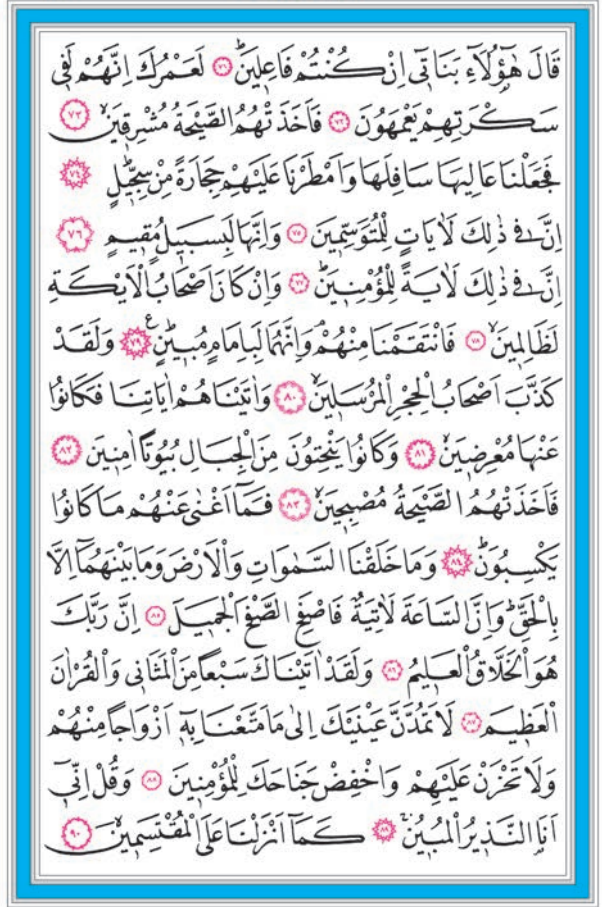 قَالَ هٰٓؤُلَٓاءِ بَنَاتٖٓي اِنْ كُنْتُمْ فَاعِلٖينَؕ ﴿٧١﴾ لَعَمْرُكَ اِنَّهُمْ لَفٖي
سَكْرَتِهِمْ يَعْمَهُونَ ﴿٧٢﴾ فَاَخَذَتْهُمُ الصَّيْحَةُ مُشْرِقٖينَۙ ﴿٧٣﴾
فَجَعَلْنَا عَالِيَهَا سَافِلَهَا وَاَمْطَرْنَا عَلَيْهِمْ حِجَارَةً مِنْ سِجّٖيلٍ ﴿٧٤﴾
اِنَّ فٖي ذٰلِكَ لَاٰيَاتٍ لِلْمُتَوَسِّمٖينَ ﴿٧٥﴾ وَاِنَّهَا لَبِسَبٖيلٍ مُقٖيمٍ ﴿٧٦﴾
اِنَّ فٖي ذٰلِكَ لَاٰيَةً لِلْمُؤْمِنٖينَؕ ﴿٧٧﴾ وَاِنْ كَانَ اَصْحَابُ الْاَيْكَةِ
لَظَالِمٖينَۙ ﴿٧٨﴾ فَانْتَقَمْنَا مِنْهُمْۘ وَاِنَّهُمَا لَبِاِمَامٍ مُبٖينٍؕ ﴿٧٩﴾ وَلَقَدْ
كَذَّبَ اَصْحَابُ الْحِجْرِ الْمُرْسَلٖينَۙ ﴿٨٠﴾ وَاٰتَيْنَاهُمْ اٰيَاتِنَا فَكَانُوا
عَنْهَا مُعْرِضٖينَۙ ﴿٨١﴾ وَكَانُوا يَنْحِتُونَ مِنَ الْجِبَالِ بُيُوتًا اٰمِنٖينَ ﴿٨٢﴾
فَاَخَذَتْهُمُ الصَّيْحَةُ مُصْبِحٖينَۙ ﴿٨٣﴾ فَمَٓا اَغْنٰى عَنْهُمْ مَا كَانُوا
يَكْسِبُونَؕ ﴿٨٤﴾ وَمَا خَلَقْنَا السَّمٰوَاتِ وَالْاَرْضَ وَمَا بَيْنَهُمَٓا اِلَّا
بِالْحَقِّؕ وَاِنَّ السَّاعَةَ لَاٰتِيَةٌ فَاصْفَحِ الصَّفْحَ الْجَمٖيلَ ﴿٨٥﴾ اِنَّ رَبَّكَ
هُوَ الْخَلَّاقُ الْعَلٖيمُ ﴿٨٦﴾ وَلَقَدْ اٰتَيْنَاكَ سَبْعًا مِنَ الْمَثَانٖي وَالْقُرْاٰنَ
الْعَظٖيمَ ﴿٨٧﴾ لَا تَمُدَّنَّ عَيْنَيْكَ اِلٰى مَا مَتَّعْنَا بِهٖٓ اَزْوَاجًا مِنْهُمْ
وَلَا تَحْزَنْ عَلَيْهِمْ وَاخْفِضْ جَنَاحَكَ لِلْمُؤْمِنٖينَ ﴿٨٨﴾ وَقُلْ اِنّٖٓي
اَنَا النَّذٖيرُ الْمُبٖينُۚ ﴿٨٩﴾ كَمَٓا اَنْزَلْنَا عَلَى الْمُقْتَسِمٖينَۙ ﴿٩٠﴾